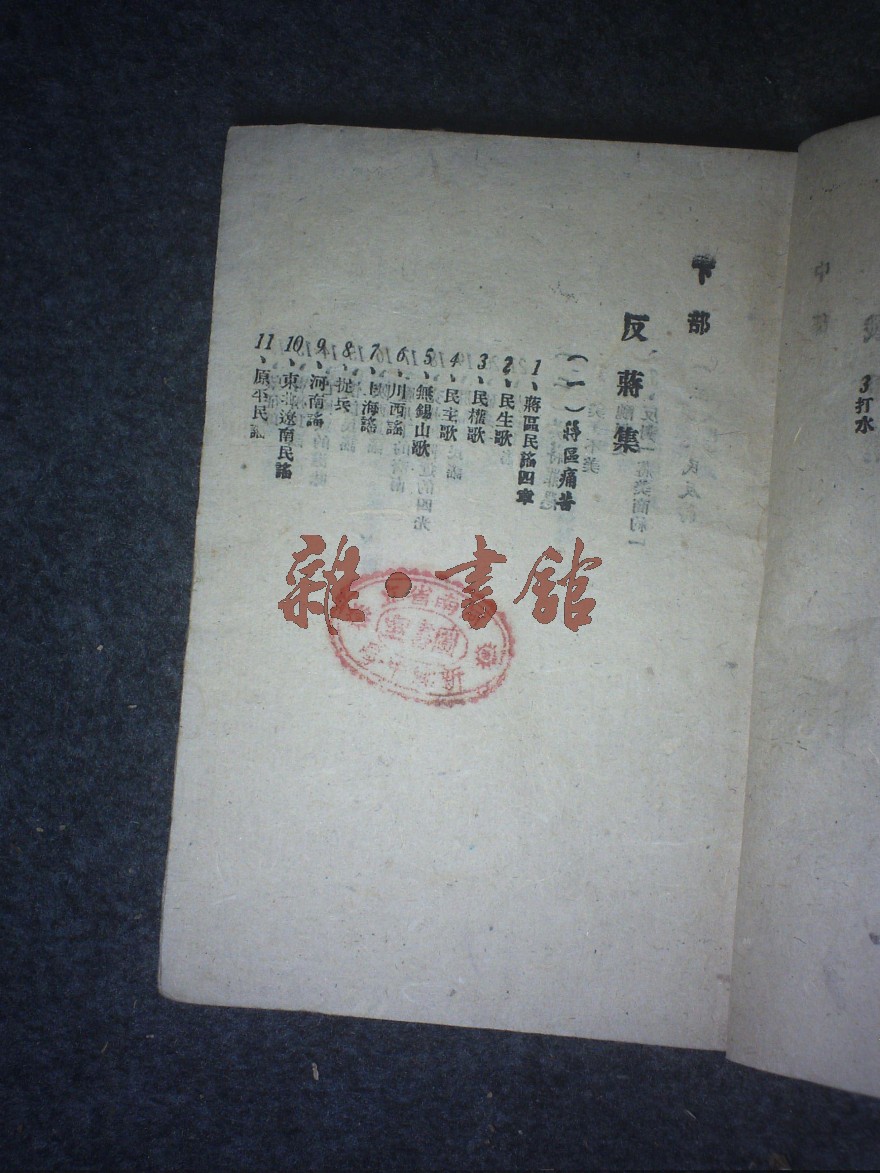 3 打水
下部
反蔣集
(一)蔣區痛苦
1、蔣區民謠四章
2、民生歌
3、民權歌
4、民主歌
5、無錫山歌
6、川西謠
7、上海謠
8、抽兵
9、河南謠
10、東北遼南民謠
11、原平民謠
雜·書舘